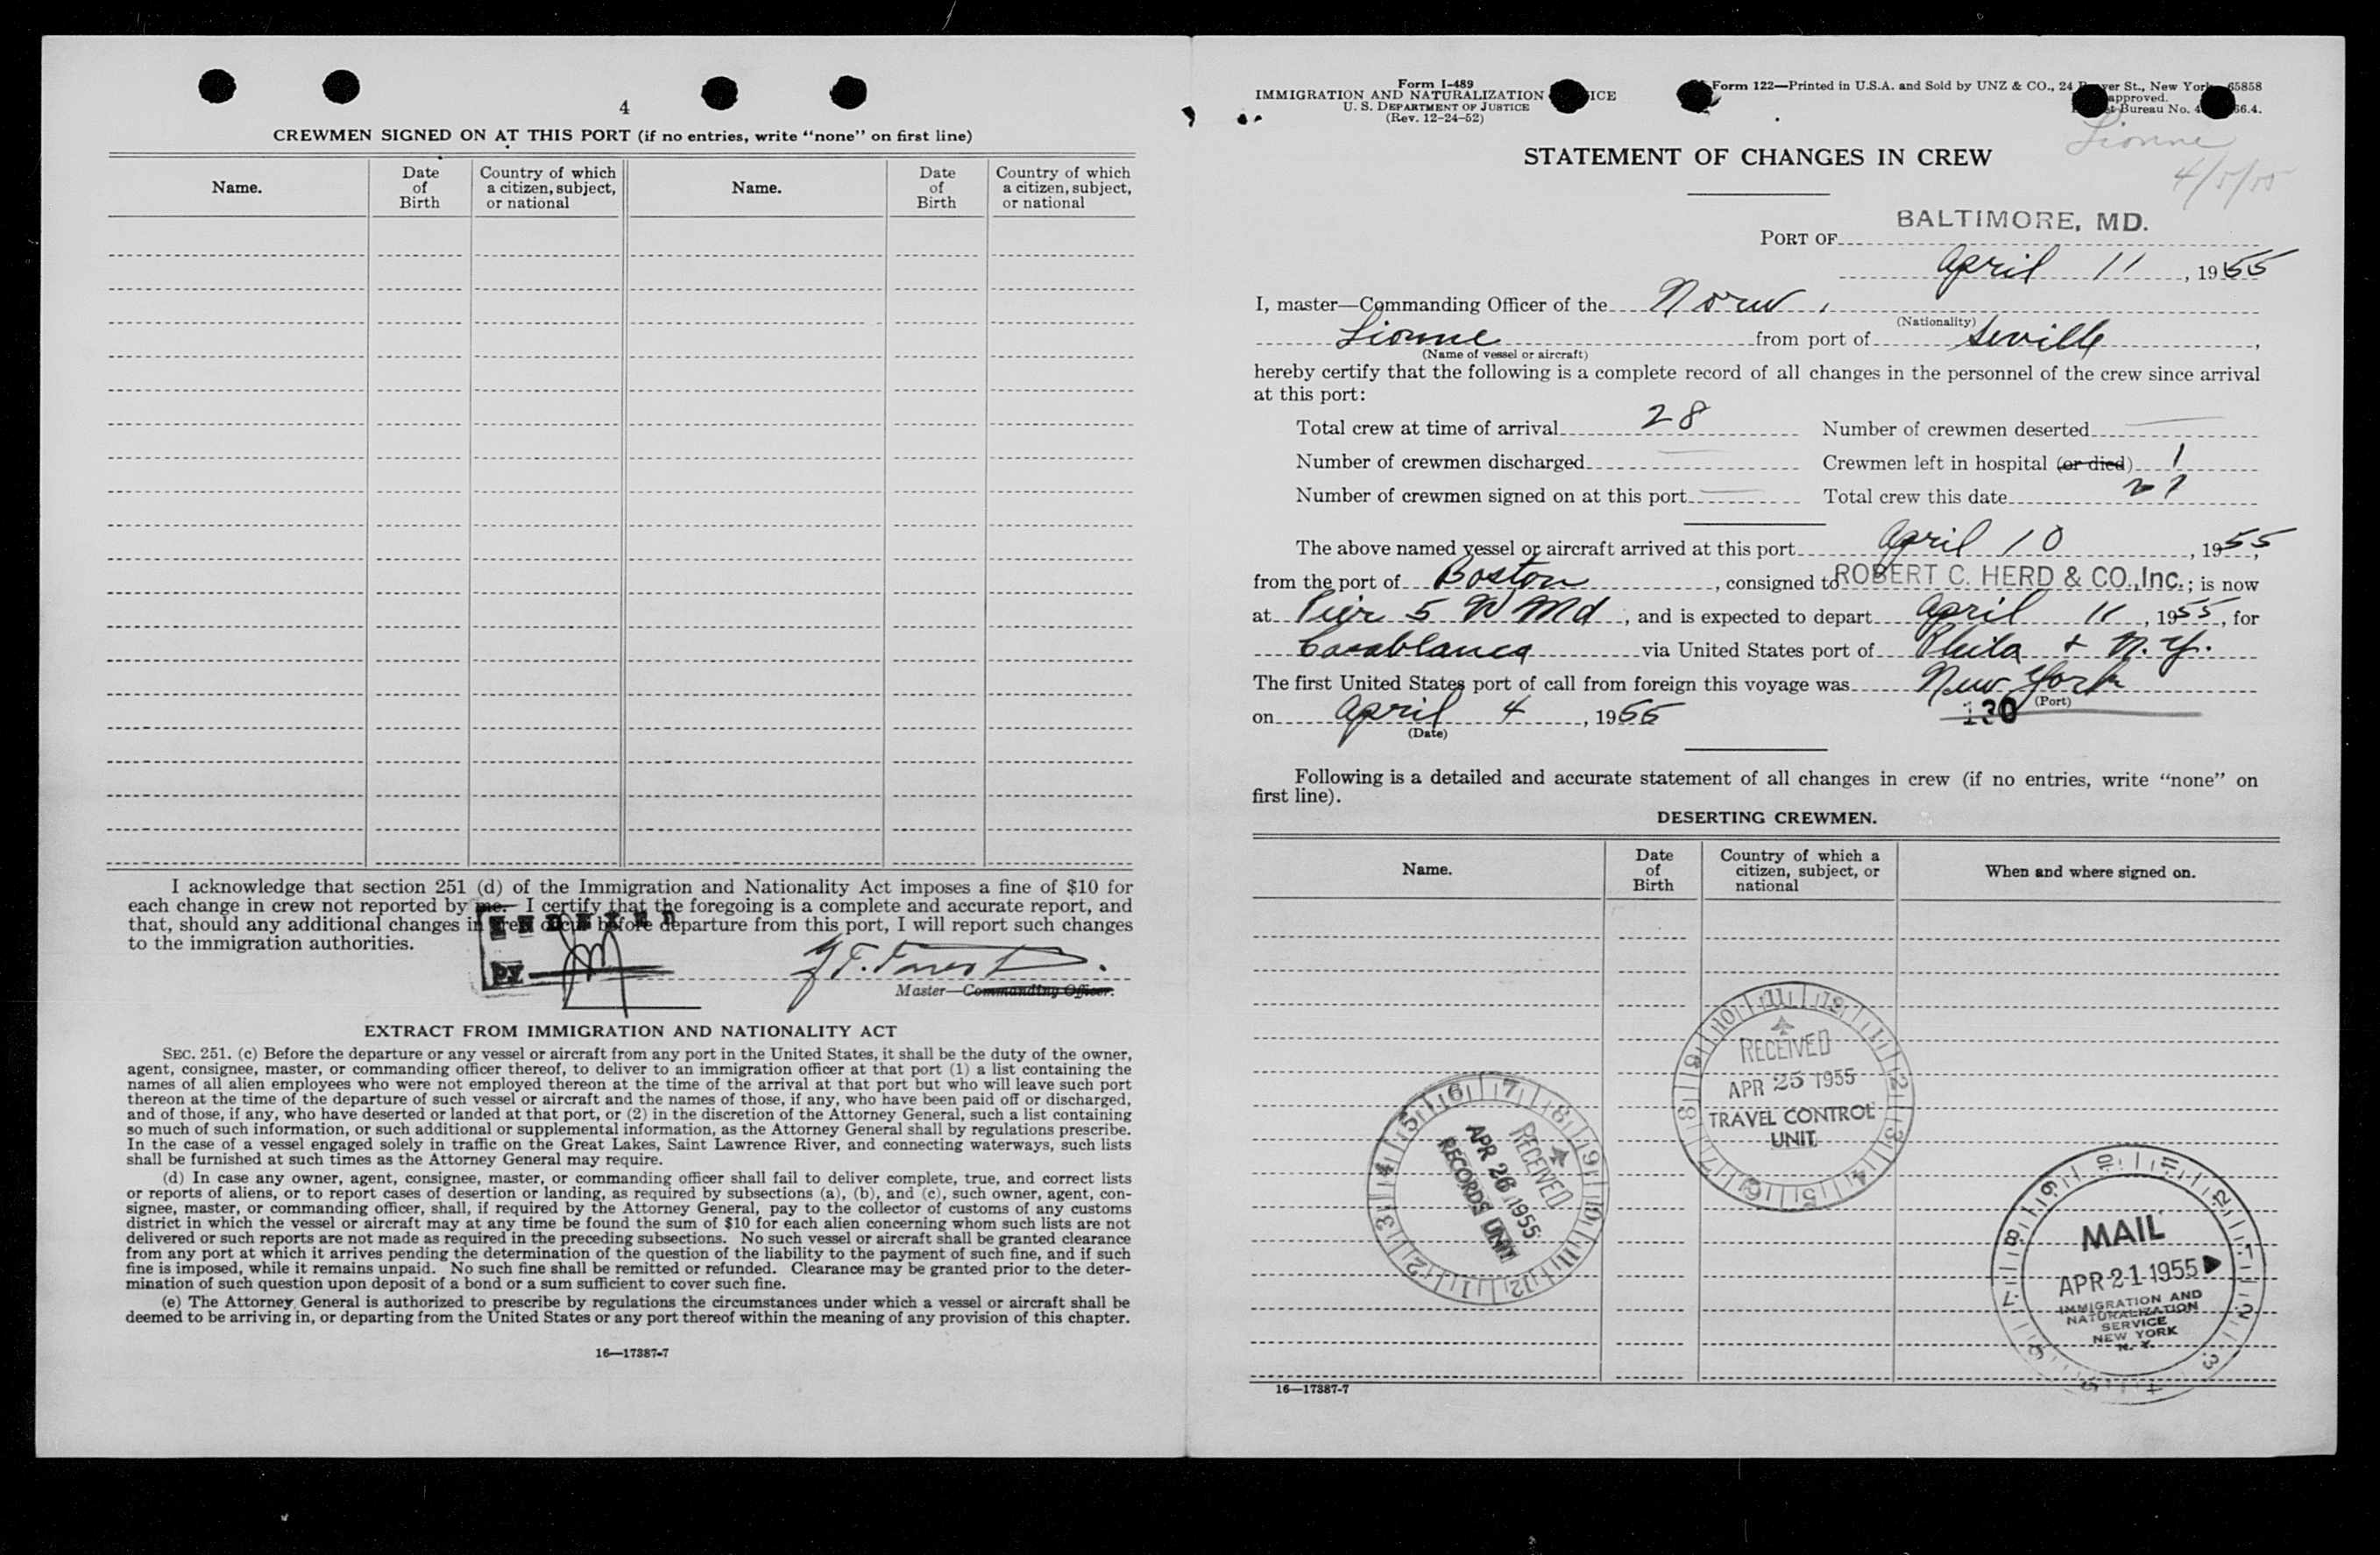 4
CREWMEN SIGNED ON AT THIS PORT (if no entries, write “none” on first line)
Name. Date of Birth Country of which a citizen, subject, or national Name. Date of Birth Country of which a citizen, subject, or national
I acknowledge that section 251 (d) of the Immigration and Nationality Act imposes a fine of $10 for
each change in crew not reported by me. I certify that the foregoing is a complete and accurate report, and
that, should any additional changes in crew occur before departure from this port, I will report such changes
to the immigration authorities.
by
Master—Commanding Officer.
EXTRACT FROM IMMIGRATION AND NATIONALITY ACT
SEC. 251. (c) Before the departure or any vessel or aircraft from any port in the United States, it shall be the duty of the owner,
agent, consignee, master, or commanding officer thereof, to deliver to an immigration officer at that port (1) a list containing the
names of all alien employees who were not employed thereon at the time of the arrival at that port but who will leave such port
thereon at the time of the departure of such vessel or aircraft and the names of those, if any, who have been paid off or discharged,
and of those, if any, who have deserted or landed at that port, or (2) in the discretion of the Attorney General, such a list containing
so much of such information, or such additional or supplemental information, as the Attorney General shall by regulations prescribe.
In the case of a vessel engaged solely in traffic on the Great Lakes, Saint Lawrence River, and connecting waterways, such lists
shall be furnished at such times as the Attorney General may require.
(d) In case any owner, agent, consignee, master, or commanding officer shall fail to deliver complete, true, and correct lists
or reports of aliens, or to report cases of desertion or landing, as required by subsections (a), (b), and (c), such owner, agent, con-
signee, master, or commanding officer, shall, if required by the Attorney General, pay to the collector of customs of any customs
district in which the vessel or aircraft may at any time be found the sum of $10 for each alien concerning whom such lists are not
delivered or such reports are not made as required in the preceding subsections. No such vessel or aircraft shall be granted clearance
from any port at which it arrives pending the determination of the question of the liability to the payment of such fine, and if such
fine is imposed, while it remains unpaid. No such fine shall be remitted or refunded. Clearance may be granted prior to the deter-
mination of such question upon deposit of a bond or a sum sufficient to cover such fine.
(e) The Attorney General is authorized to prescribe by regulations the circumstances under which a vessel or aircraft shall be
deemed to be arriving in, or departing from the United States or any port thereof within the meaning of any provision of this chapter.
16—17387-7
Form I-489
IMMIGRATION AND NATURALIZATION
U. S. DEPARTMENT OF JUSTICE
(Rev. 12-24-52)
Form 122—Printed in U.S.A. and Sold by UNZ & CO., 24 St., New York 65858
approved.
Bureau No. 4
Lionne
STATEMENT OF CHANGES IN CREW
PORT OF BALTIMORE, MD.
April 11, 1955
I, master—Commanding Officer of the Norw.
(Nationality)
Lionne from port of Seville,
(Name of vessel or aircraft)
hereby certify that the following is a complete record of all changes in the personnel of the crew since arrival
at this port:
Total crew at time of arrival 28 Number of crewmen deserted —
Number of crewmen discharged — Crewmen left in hospital (or died) 1
Number of crewmen signed on at this port — Total crew this date 27
The above named vessel or aircraft arrived at this port April 10, 1955,
from the port of Boston, consigned to ROBERT C. HERD & CO., Inc.; is now
at Pier 5 W Md, and is expected to depart April 11, 1955, for
Casablanca via United States port of Phila + N.Y.
The first United States port of call from foreign this voyage was New York
(Port)
on April 4, 1955 130
(Date)
Following is a detailed and accurate statement of all changes in crew (if no entries, write “none” on
first line).
DESERTING CREWMEN.
Name. Date of Birth Country of which a citizen, subject, or national When and where signed on.
RECEIVED
APR 25 1955
TRAVEL CONTROL
UNIT
RECEIVED
APR 26 1955
RECORDS UNIT
MAIL
APR 21 1955
IMMIGRATION AND
NATURALIZATION
SERVICE
NEW YORK
N. Y.
16—17387-7